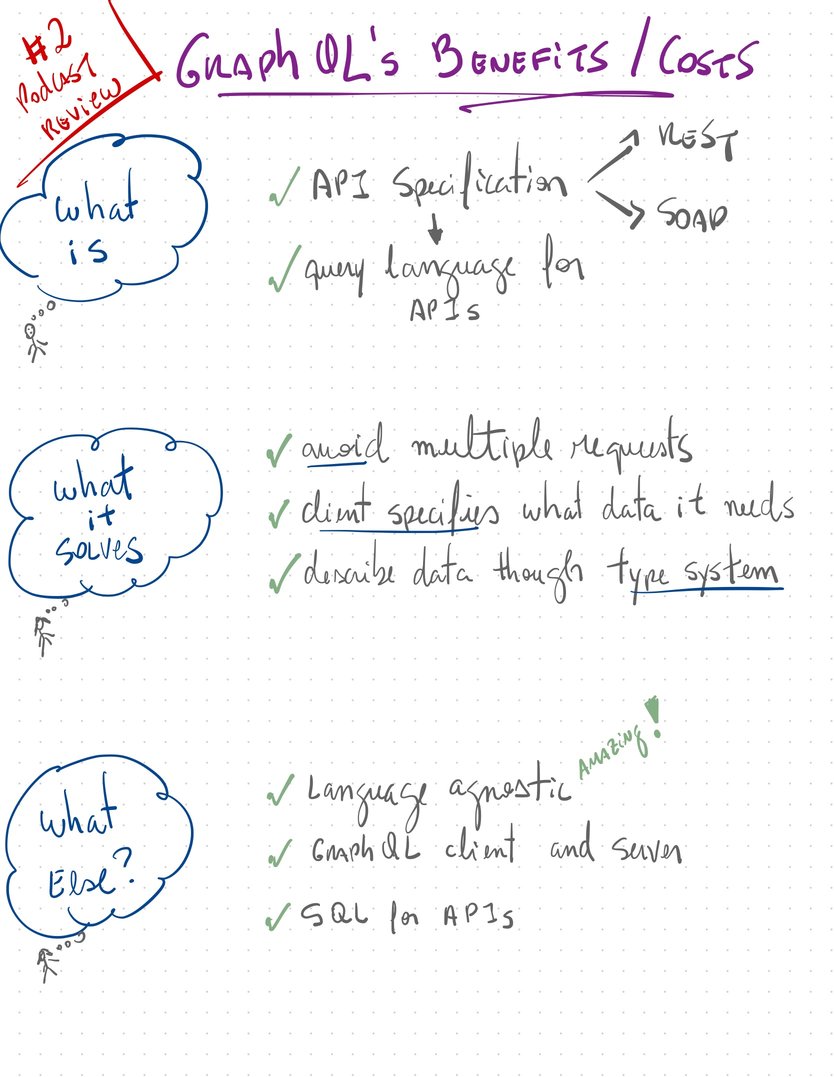 #2
Podcast
Review
GraphQL's Benefits / Costs
what
is
API Specification
REST
SOAP
query language for
APIs
what
it
solves
avoid multiple requests
client specifies what data it needs
describe data though type system
what
Else?
Amazing!
Language agnostic
GraphQL client and server
SQL for APIs